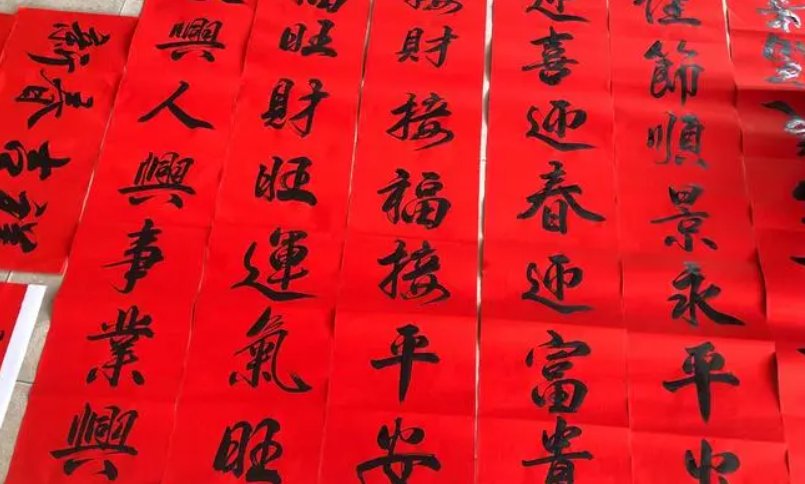 佳節順景永平安
迎喜迎春迎富貴
接財接福接平安
福旺財旺運氣旺
興人興事業興
新春吉祥